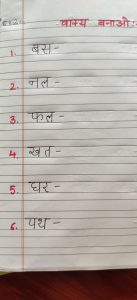 वाक्य बनाओ:-
1. बस -
2. नल -
3. फल -
4. खत -
5. घर -
6. पथ -